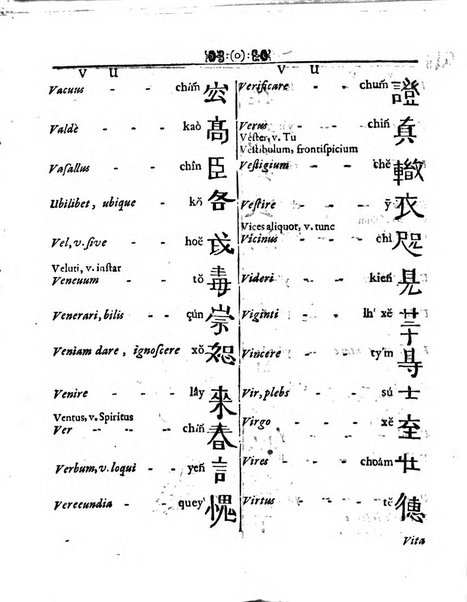 V U
Vacuus - - chim̃ 空
Valdè - - kaò 高
Vaſallus - - chîn 臣
Ubilibet, ubique - kŏ 各
Vel, v. ſive - hoĕ 或
Veluti, v. inſtar
Venenum - - tŏ 毒
Venerari, bilis - çûn 崇
Veniam dare, ignoſcere xŏ 恕
Venire - - lây 來
Ventus, v. Spiritus
Ver - - - chiñ 春
Verbum, v. loqui - yeñ 言
Verecundia - quey' 愧
V U
Verificare - - chum̃ 證
Verus - - chiñ 真
Veſter, v. Tu
Veſtibulum, frontiſpicium
Veſtigium - - chĕ 轍
Veſtire - - - ȳ 衣
Vices aliquot, v. tunc
Vicinus - - chì 咫
Videri - - kień 見
Viginti - - lh' xĕ 二十
Vincere - - ty'm
Vir, plebs - sú 士
Virgo - - xĕ 室
Vires - - choám 壯
Virtus - - tĕ 德
Vita